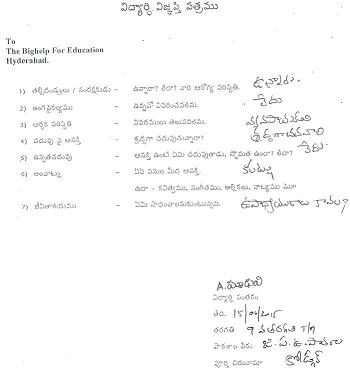 విద్యార్థి విజ్ఞప్తి పత్రము
To
The Bighelp For Education
Hyderabad.
1) తల్లిదండ్రులు / సంరక్షకుడు – ఉన్నారా? లేదా? వారి ఆరోగ్య పరిస్థితి. ఉన్నారు.
2) అంగవైకల్యము – ఉన్నచో వివరించవలెను. లేదు
3) ఆర్థిక పరిస్థితి – వివరములు తెలుపవలెను.
4) చదువు పై ఆసక్తి – శ్రద్ధగా చదువుచున్నారా?
5) ఉన్నతచదువు – ఆసక్తి ఉంటే ఏమి చదువుతాడు, స్తోమత ఉందా? లేదా? లేదు
6) అలవాట్లు – ఏఏ పనుల మీద ఆసక్తి. కుట్లు
ఉదా – కవిత్వము, సంగీతము, అల్లికలు, నాట్యము ము॥
7) జీవితాశయము – ఏమి సాధించాలనుకుంటున్నది. ఉపాధ్యాయురాలు కావాలి
A.
విద్యార్థి సంతకం
తేది. 15/06/2015
తరగతి 9 వ తరగతి T/M
పాఠశాల పేరు జి.ప.ఉ.పాఠశాల
పూర్తి చిరునామా